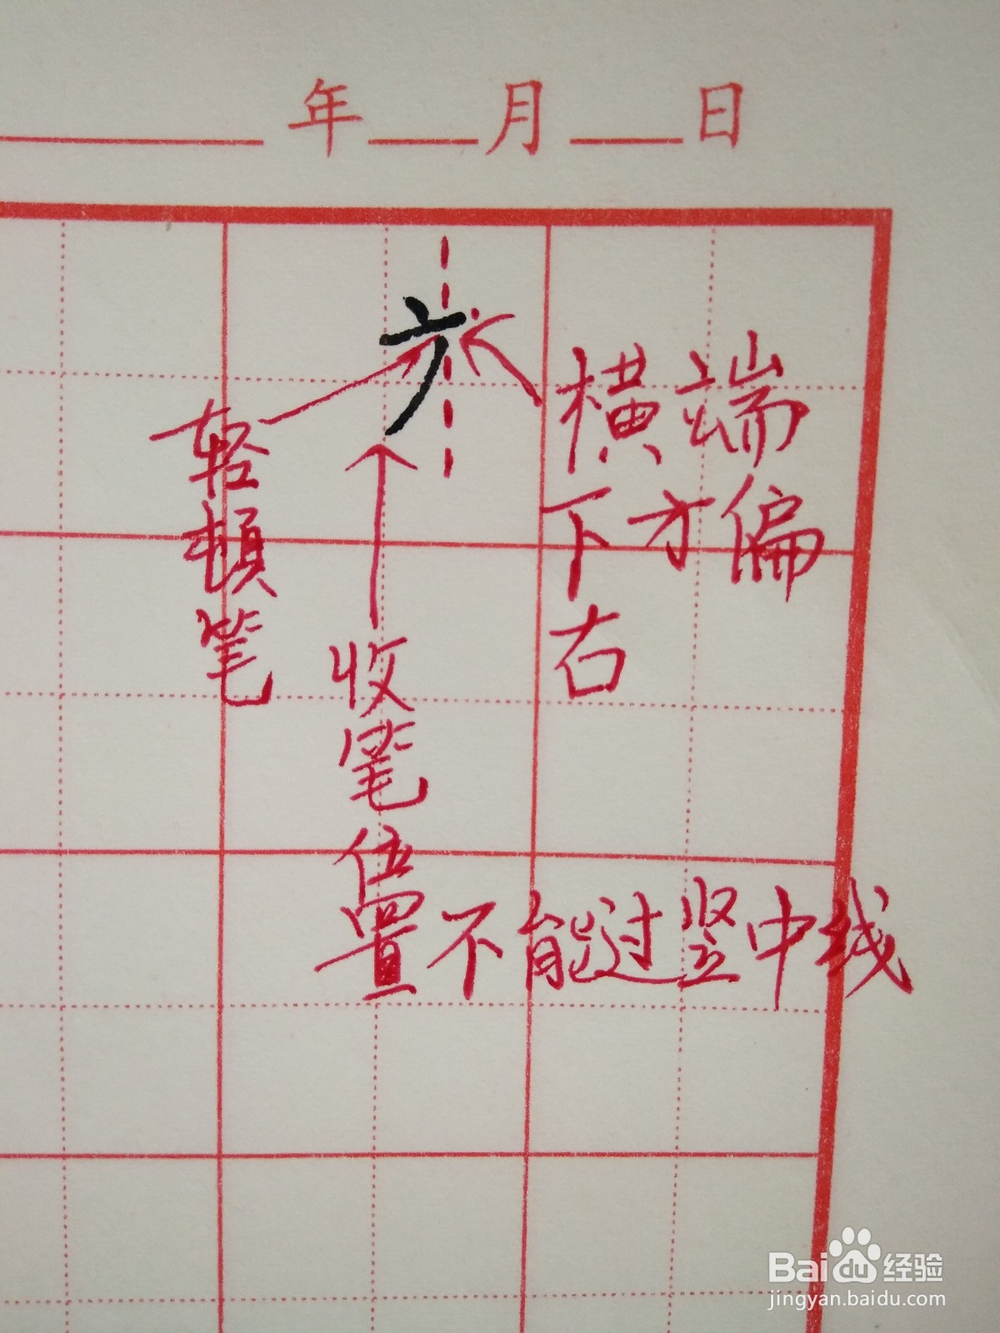 年 月 日
横端
下方偏
右
轻顿笔
收笔位置不能过竖中线
Baidu 经验
jingyan.baidu.com